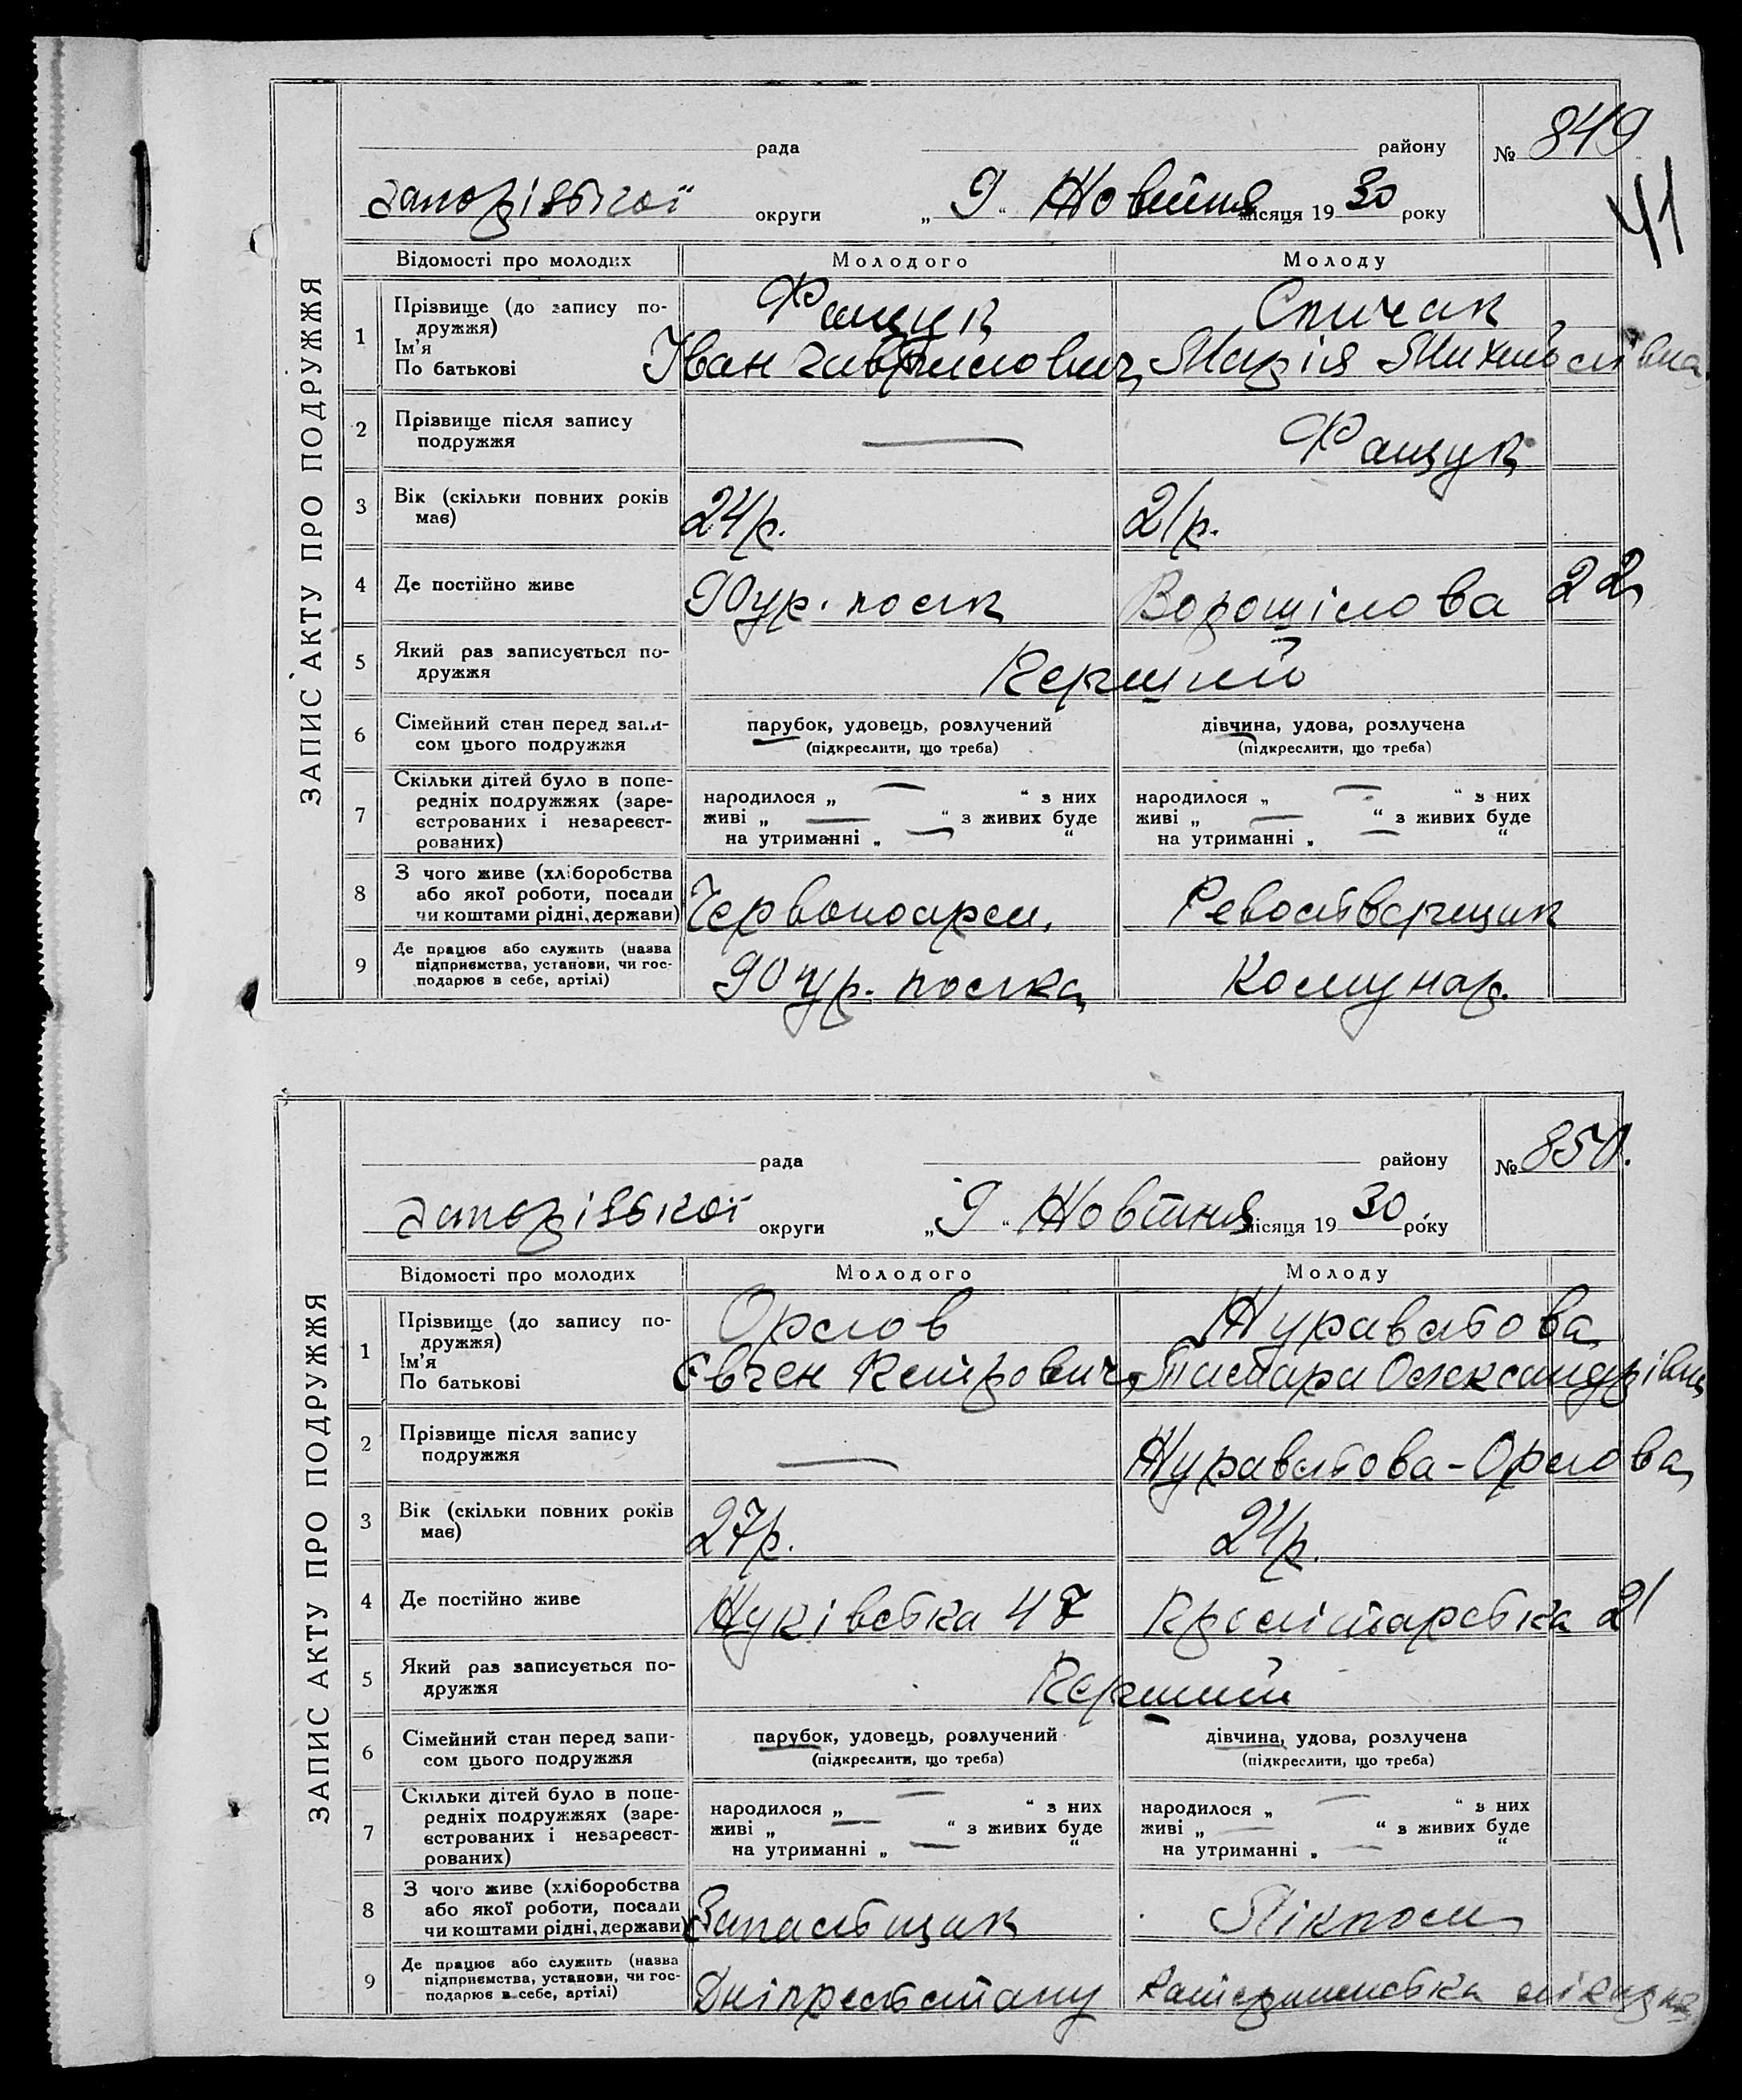 ЗАПИС АКТУ ПРО ПОДРУЖЖЯ
рада району № 849
41
Запорізької округи „ 9 “ Жовтня місяця 19 30 року
Відомості про молодих Молодого Молоду
1 Прізвище (до запису подружжя) Фащук Спичак
Ім'я
По батькові Іван Гаврилович Марія Михайлівна
2 Прізвище після запису
подружжя — Фащук
3 Вік (скільки повних років
має) 24 р. 21 р.
4 Де постійно живе 90 ур. полк Ворошілова 22
5 Який раз записується по-
дружжя Перший
6 Сімейний стан перед запи-
сом цього подружжя
парубок, удовець, розлучений дівчина, удова, розлучена
(підкреслити, що треба) (підкреслити, що треба)
7 Скільки дітей було в попе-
редніх подружжях (заре-
єстрованих і незареєст-
рованих)
народилося „ — “ з них народилося „ — “ з них
живі „ — “ з живих буде живі „ — “ з живих буде
на утриманні „ — “ на утриманні „ — “
8 З чого живе (хліборобства
або якої роботи, посади
чи коштами рідні, держави) Червоноарм.
9 Де працює або служить (назва
підприємства, установи, чи гос-
подарює в себе, артілі) 90 ур. полка Комунар.
ЗАПИС АКТУ ПРО ПОДРУЖЖЯ
рада району № 850.
Запорізької округи „ 9 “ Жовтня місяця 19 30 року
Відомості про молодих Молодого Молоду
1 Прізвище (до запису по-
дружжя) Орлов
Ім'я
По батькові Євген Петрович Тамара Олександрівна
2 Прізвище після запису
подружжя —
3 Вік (скільки повних років
має) 27 р. 24 р.
4 Де постійно живе 47 21
5 Який раз записується по-
дружжя Перший
6 Сімейний стан перед запи-
сом цього подружжя
парубок, удовець, розлучений дівчина, удова, розлучена
(підкреслити, що треба) (підкреслити, що треба)
7 Скільки дітей було в попе-
редніх подружжях (заре-
єстрованих і незареєст-
рованих)
народилося „ — “ з них народилося „ — “ з них
живі „ — “ з живих буде живі „ — “ з живих буде
на утриманні „ — “ на утриманні „ — “
8 З чого живе (хліборобства
або якої роботи, посади
чи коштами рідні, держави) Лікпом
9 Де працює або служить (назва
підприємства, установи, чи гос-
подарює в себе, артілі)